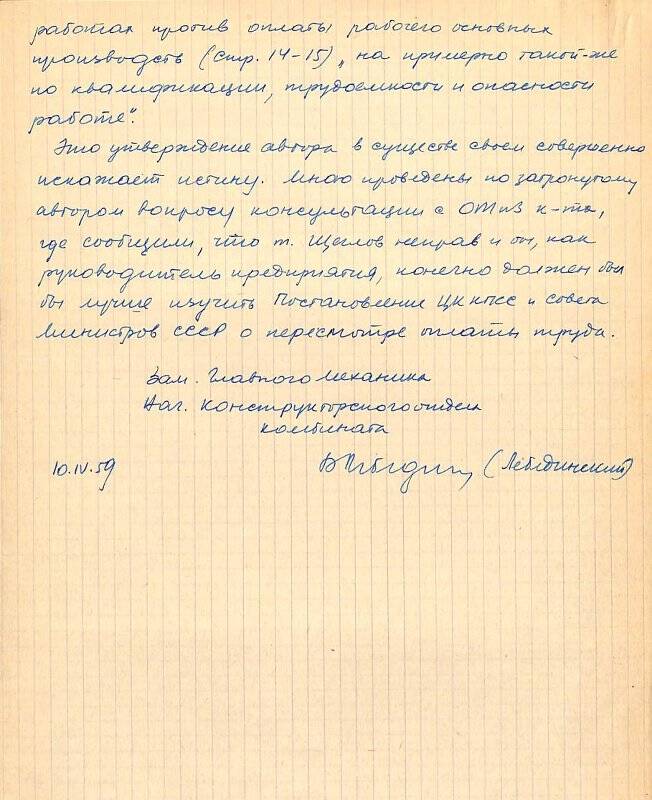 работах против оплаты рабочего основных
производств (стр. 14-15) „на примерно такой-же
по квалификации, трудоемкости и опасности
работе".
Это утверждение автора в существе своем совершенно
искажает истину. Мною проведены по затронутому
автором вопросу консультации с ОТиЗ к-та,
где сообщили, что т. Щеглов неправ и он, как
руководитель предприятия, конечно должен был
бы лучше изучить Постановление ЦК КПСС и совета
Министров СССР о пересмотре оплаты труда.
Зам. Главного Механика
Нач. Конструкторского отдела
комбината
10.IV.59
(Лебединский)